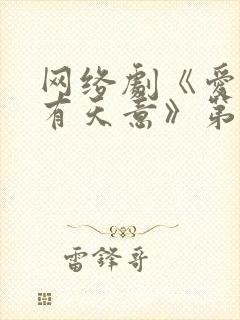 网络剧《爱
有天意》第
雷锋哥